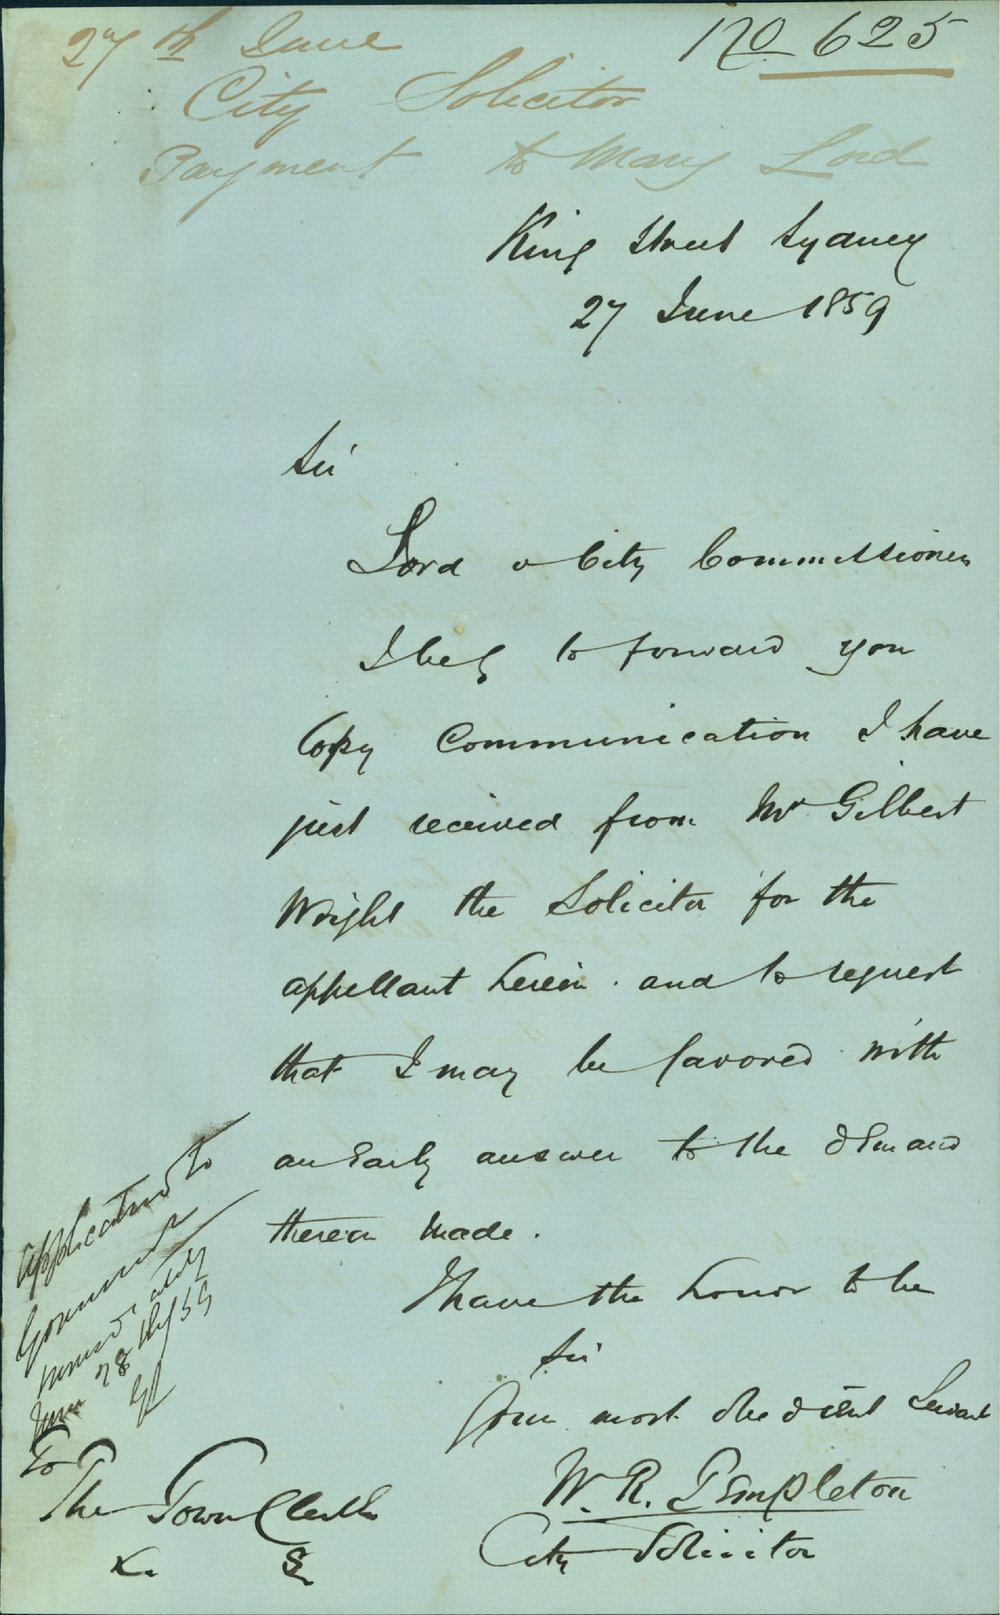 27th June
No 625
City Solicitor
Payment to Mary Lord
King Street Sydney
27 June 1859
Sir
Lord v City Commissioners
I beg to forward you
Copy Communication I have
just received from Mr Gilbert
Wright the Solicitor for the
appellant herein. and to request
that I may be favored with
an Early answer to the demand
therein made.
I have the honor to be
Sir
Your most obedient Servant
W. R. Templeton
City Solicitor
Application to
Government
immediately
June 28
To
The Town Clerk